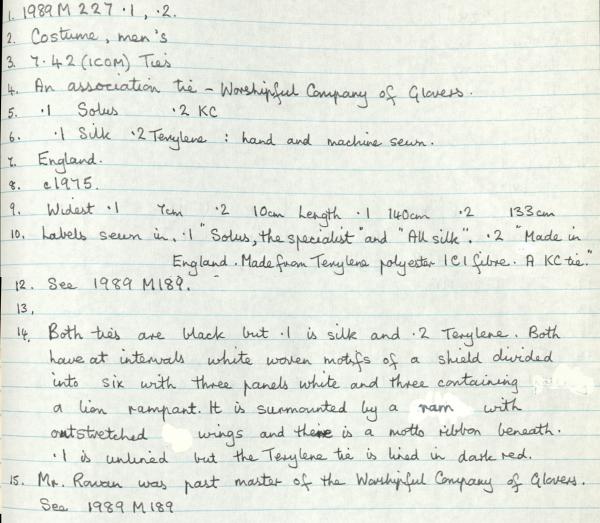 1. 1989 M 227 .1, .2.
2. Costume, men's
3. 7.42 (ICOM) Ties
4. An association tie – Worshipful Company of Glovers.
5. .1 Solus .2 KC
6. .1 Silk .2 Terylene : hand and machine sewn.
7. England.
8. c1975.
9. Widest .1 7cm .2 10cm Length .1 140cm .2 133cm
10. Labels sewn in. .1 "Solus, the specialist" and "All silk". .2 "Made in
England. Made from Terylene polyester ICI fibre. A KC tie."
12. See 1989 M189.
13,
14. Both ties are black but .1 is silk and .2 Terylene. Both
have at intervals white woven motifs of a shield divided
into six with three panels white and three containing
a lion rampant. It is surmounted by a ram with
outstretched wings and there is a motto ribbon beneath.
.1 is unlined but the Terylene tie is lined in dark red.
15. Mr. Rowan was past master of the Worshipful Company of Glovers.
See 1989 M189